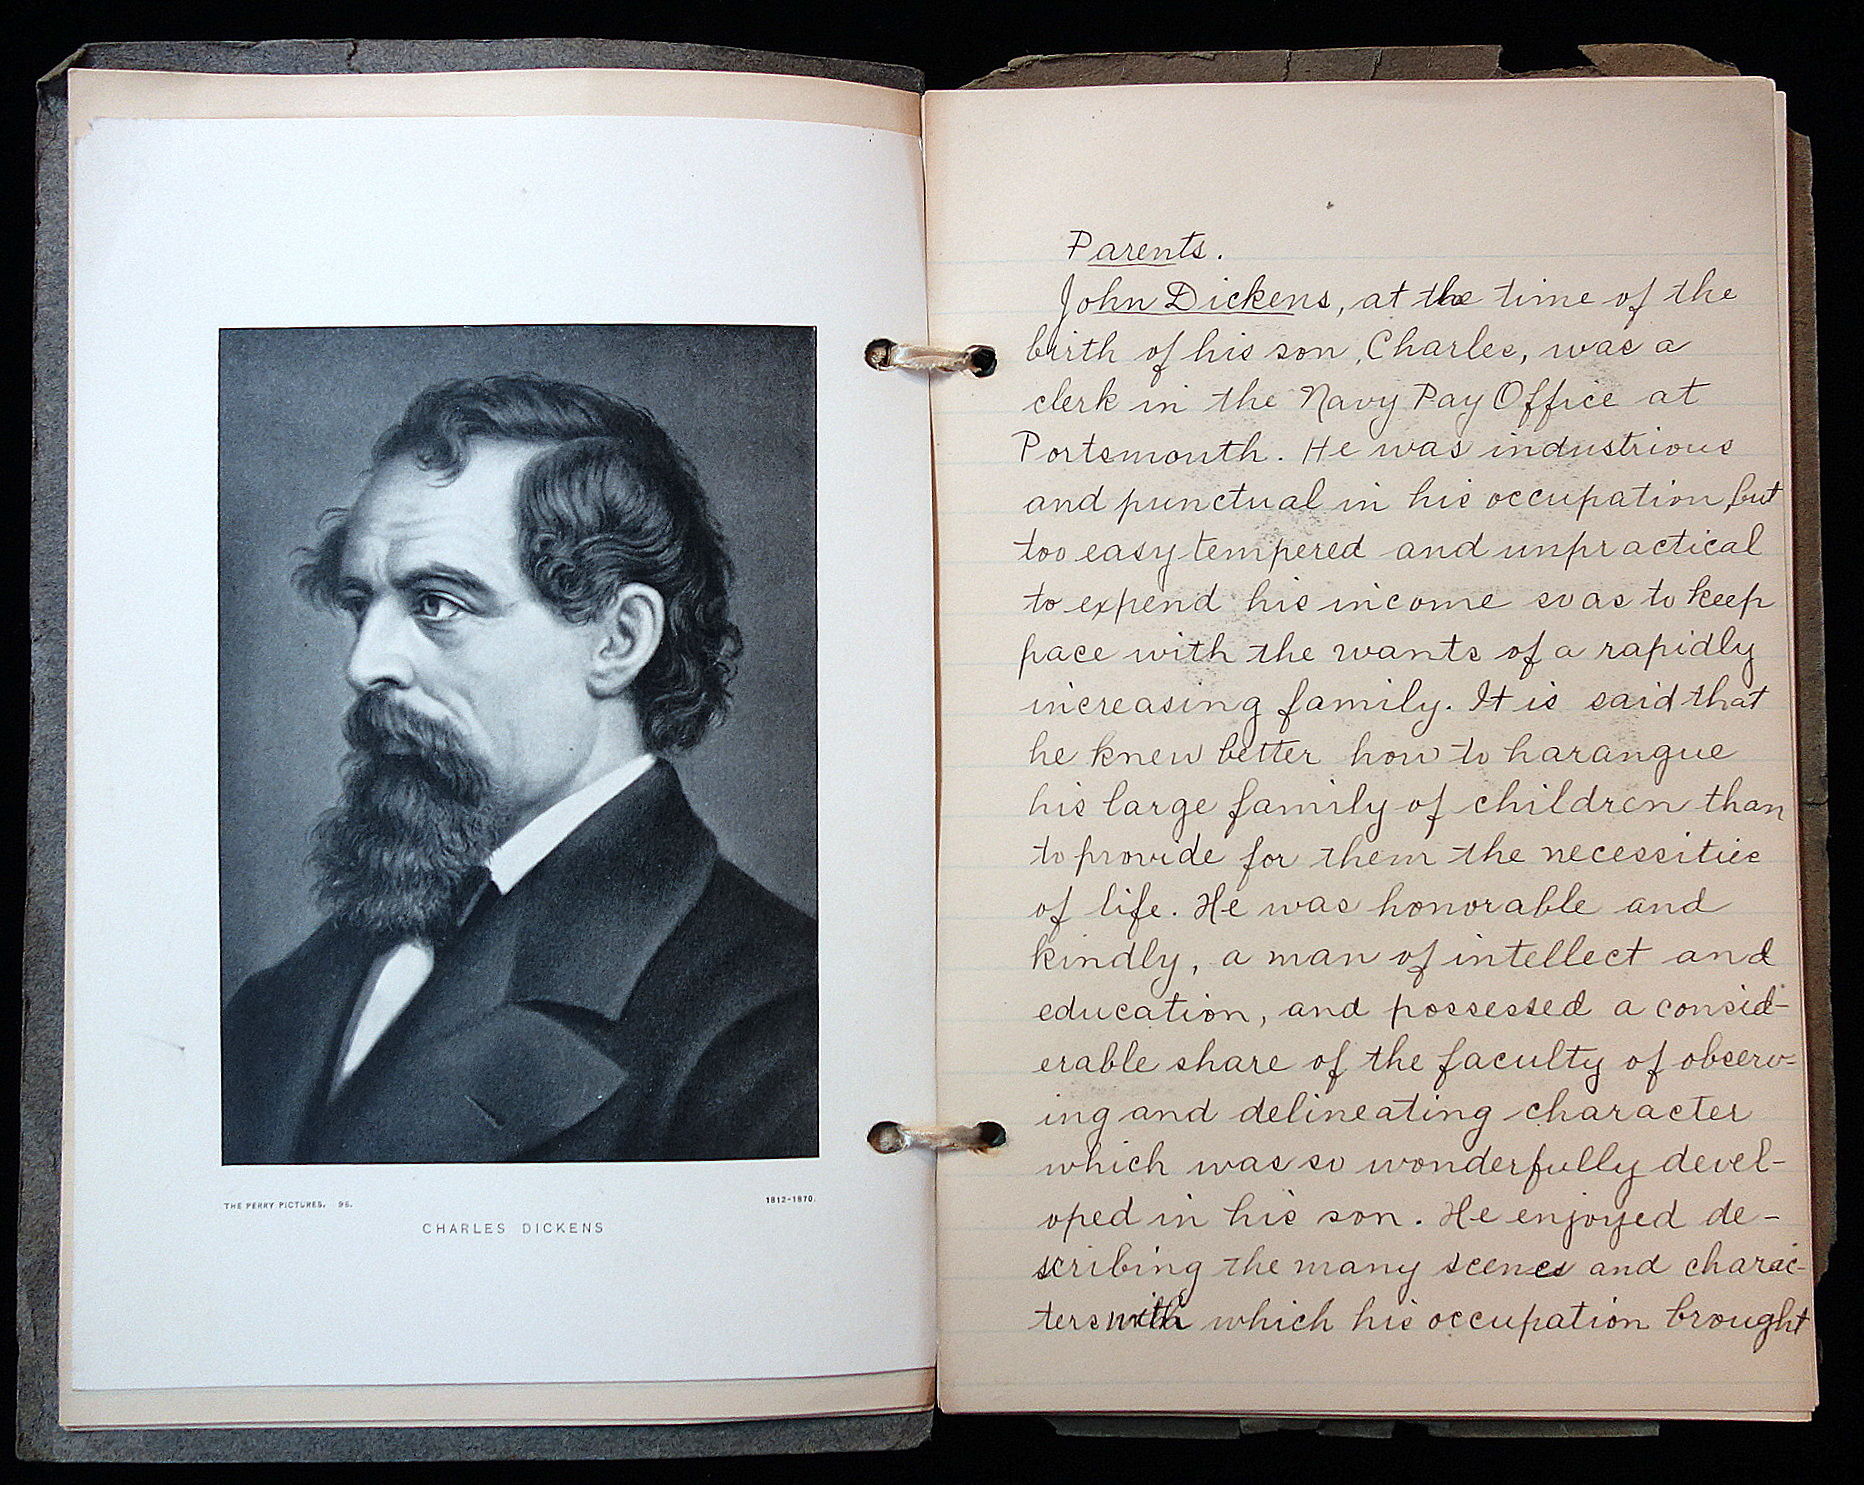 THE PERRY PICTURES. 96.
1812-1870.
CHARLES DICKENS
Parents.
John Dickens, at the time of the
birth of his son, Charles, was a
clerk in the Navy Pay Office at
Portsmouth. He was industrious
and punctual in his occupation, but
too easy tempered and unpractical
to expend his income so as to keep
pace with the wants of a rapidly
increasing family. It is said that
he knew better how to harangue
his large family of children than
to provide for them the necessities
of life. He was honorable and
kindly, a man of intellect and
education, and possessed a consid-
erable share of the faculty of observ-
ing and delineating character
which was so wonderfully devel-
oped in his son. He enjoyed de-
scribing the many scenes and charac-
ters with which his occupation brought